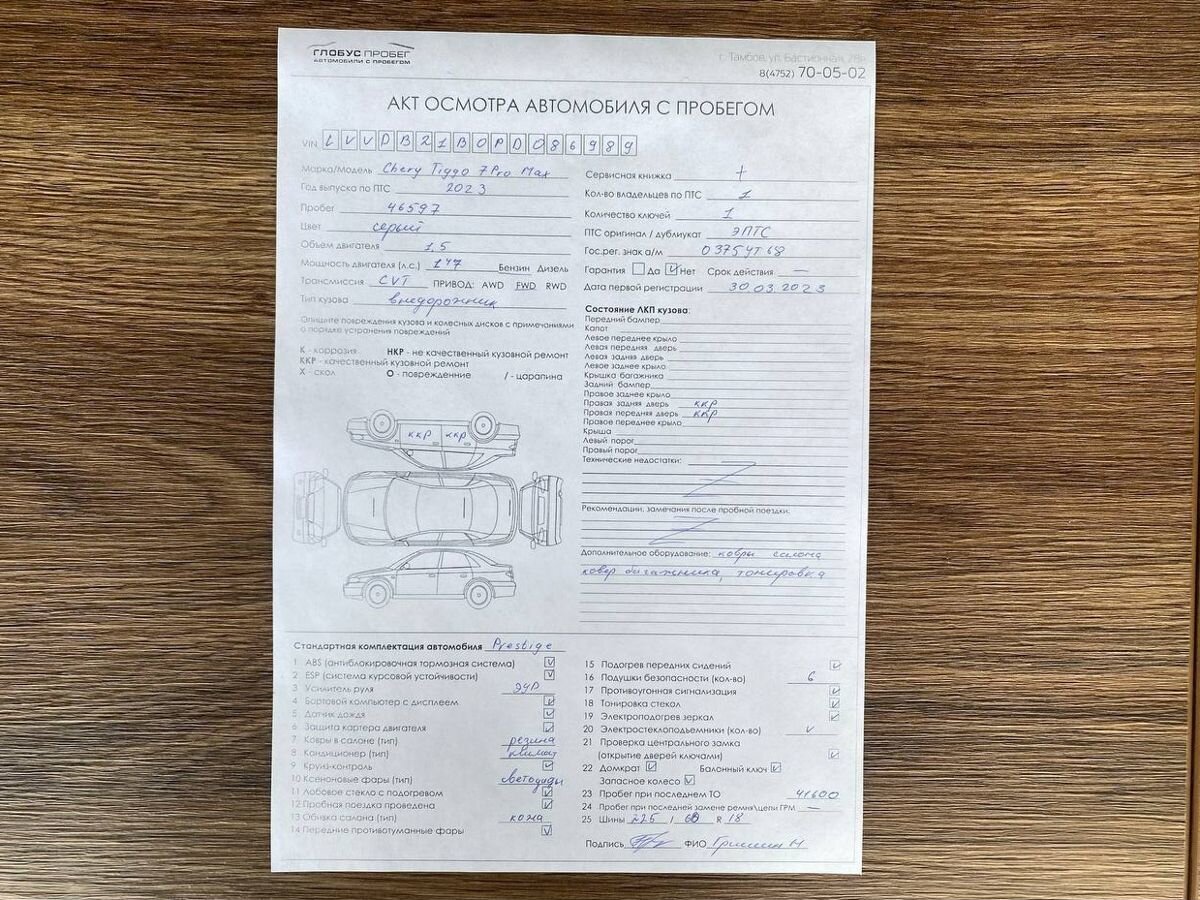 ГЛОБУС ПРОБЕГ
АВТОМОБИЛИ С ПРОБЕГОМ
г. Тамбов, ул. Бастионная, 28п
8(4752) 70-05-02
АКТ ОСМОТРА АВТОМОБИЛЯ С ПРОБЕГОМ
VIN LVVDB21B0PD086989
Марка/Модель Chery Tiggo 7 Pro Max
Год выпуска по ПТС 2023
Пробег 46597
Цвет серый
Объем двигателя 1,5
Мощность двигателя (л.с.) 147 Бензин Дизель
Трансмиссия CVT ПРИВОД: AWD FWD RWD
Тип кузова внедорожник
Опишите повреждения кузова и колесных дисков с примечаниями
о порядке устранения повреждений
К - коррозия НКР - не качественный кузовной ремонт
ККР - качественный кузовной ремонт
Х - скол О - повреждение / - царапина
ккр ккр
Сервисная книжка +
Кол-во владельцев по ПТС 1
Количество ключей 1
ПТС оригинал / дубликат ЭПТС
Гос.рег. знак а/м О375УТ68
Гарантия Да Нет Срок действия —
Дата первой регистрации 30.03.2023
Состояние ЛКП кузова:
Передний бампер
Капот
Левое переднее крыло
Левая передняя дверь
Левая задняя дверь
Левое заднее крыло
Крышка багажника
Задний бампер
Правое заднее крыло
Правая задняя дверь ккр
Правая передняя дверь ккр
Правое переднее крыло
Крыша
Левый порог
Правый порог
Технические недостатки:
Рекомендации, замечания после пробной поездки:
Дополнительное оборудование: ковры салона
ковер багажника, тонировка
Стандартная комплектация автомобиля Prestige
1 ABS (антиблокировочная тормозная система)
2 ESP (система курсовой устойчивости)
3 Усилитель руля ЭУР
4 Бортовой компьютер с дисплеем
5 Датчик дождя
6 Защита картера двигателя
7 Ковры в салоне (тип) резина
8 Кондиционер (тип) климат
9 Круиз-контроль
10 Ксеноновые фары (тип) светодиоды
11 Лобовое стекло с подогревом
12 Пробная поездка проведена
13 Обивка салона (тип) кожа
14 Передние противотуманные фары
15 Подогрев передних сидений
16 Подушки безопасности (кол-во) 6
17 Противоугонная сигнализация
18 Тонировка стекол
19 Электроподогрев зеркал
20 Электростеклоподъемники (кол-во)
21 Проверка центрального замка
(открытие дверей ключами)
22 Домкрат Балонный ключ
Запасное колесо
23 Пробег при последнем ТО 41600
24 Пробег при последней замене ремня\цепи ГРМ —
25 Шины 225 / 60 R 18
Подпись ФИО Гришин М